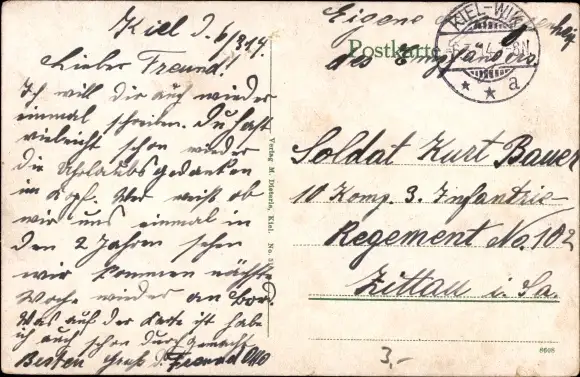 Kiel d. 6/3 14
Lieber Freund!
Ich will dir auch wieder
einmal schreiben. Du hast
vieleicht schon wieder
die Urlaubsgedanken
im Kopf. Wer weiß ob
wir uns einmal in
den 2 Jahren sehen
wir kommen nächste
Woche wieder an Bord.
Was auf der Karte ist habe
ich auch schon durchgemacht
Besten Gruß d. Freund Otto
Verlag M. Dieterle, Kiel. No.
Eigene
des Empfängers
Postkarte
KIEL-WIK
a
Soldat Kurt Bauer
10 Komp. 3. Infantrie
Regement No. 102
Zittau i. Sa.
8608
3,-